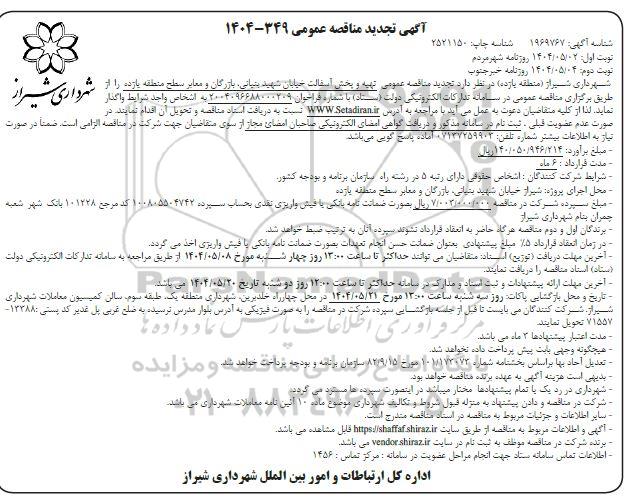 آگهی تجدید مناقصه عمومی ۳۴۹-۱۴۰۴
شناسه آگهی: ۱۹۶۹۷۶۷ شناسه چاپ: ۲۵۲۱۱۵۰
نوبت اول: ۱۴۰۴/۰۵/۰۲ روزنامه شهرمردم
نوبت دوم: ۱۴۰۴/۰۵/۰۴ روزنامه خبرجنوب
شهرداری شیراز
شهرداری شیراز (منطقه یازده) در نظر دارد تجدید مناقصه عمومی تهیه و پخش آسفالت خیابان شهید بنیانی، بازرگان و معابر سطح منطقه یازده را از
طریق برگزاری مناقصه عمومی در سامانه تدارکات الکترونیکی دولت (ستاد) با شماره فراخوان ۲۰۰۴۰۹۶۶۸۸۰۰۰۲۰۹ به اشخاص واجد شرایط واگذار
نماید. لذا از کلیه متقاضیان دعوت به عمل می آید با مراجعه به آدرس WWW.Setadiran.ir نسبت به دریافت اسناد مناقصه و تحویل آن اقدام نمایند. در
صورت عدم عضویت قبلی، ثبت نام در سامانه مذکور و دریافت گواهی امضای الکترونیکی صاحبان امضای مجاز از سوی متقاضیان جهت شرکت در مناقصه الزامی است. ضمناً در صورت
نیاز به اطلاعات بیشتر شماره تلفن: ۰۷۱۳۷۲۵۹۹۰۳ آماده پاسخ گویی می‌باشد.
- مبلغ برآورد: ۱۴۰/۰۵۰/۹۴۶/۲۱۴ریال
- مدت قرارداد : ۶ ماه
- شرایط شرکت کنندگان : اشخاص حقوقی دارای رتبه ۵ در رشته راه سازمان برنامه و بودجه کشور.
- محل اجرای پروژه: شیراز خیابان شهید بنیانی، بازرگان و معابر سطح منطقه یازده
- مبلغ سپرده شرکت در مناقصه ۷/۰۰۳/۰۰۰/۰۰۰ ریال بصورت ضمانت نامه بانکی یا فیش واریزی نقدی بحساب سپرده ۱۰۰۸۰۵۵۰۴۷۴۲ کد مرجع ۱۰۱۲۲۸ بانک شهر شعبه
چمران بنام شهرداری شیراز
- برندگان اول و دوم مناقصه هرگاه حاضر به انعقاد قرارداد نشوند سپرده آنان به ترتیب ضبط خواهد شد.
- در زمان انعقاد قرارداد ۵٪ مبلغ پیشنهادی بعنوان ضمانت حسن انجام تعهدات بصورت ضمانت نامه بانکی یا فیش واریزی اخذ می گردد.
- آخرین مهلت دریافت (توزیع) اسناد: متقاضیان می توانند حداکثر تا ساعت ۱۳:۰۰ روز چهار شنبه مورخ ۱۴۰۴/۰۵/۰۸ از طریق مراجعه به سامانه تدارکات الکترونیکی دولت
(ستاد) اسناد مناقصه را دریافت نمایند.
- آخرین مهلت ارائه پیشنهادات و ثبت اسناد و مدارک در سامانه حداکثر تا ساعت ۱۲:۰۰ روز دو شنبه تاریخ ۱۴۰۴/۰۵/۲۰ می باشد.
- تاریخ و محل بازگشایی پاکات: روز سه شنبه ساعت ۱۲:۰۰ مورخ ۱۴۰۴/۰۵/۲۱ در محل چهارراه خلدبرین، شهرداری منطقه یک، طبقه سوم، سالن کمیسیون معاملات شهرداری
شیراز. شرکت کنندگان می بایست تا قبل از جلسه بازگشایی سپرده شرکت در مناقصه را به صورت فیزیکی به آدرس بلوار مدرس نرسیده به ضلع غربی پل غدیر کد پستی ۱۳۳۸۸-
۷۱۵۵۷ تحویل نمایند.
- مدت اعتبار پیشنهادها ۳ ماه می باشد.
- هیچگونه وجهی بابت پیش پرداخت داده نخواهد شد.
- تعدیل آحاد بها براساس بخشنامه شماره ۱۰۱/۱۷۳۰۷۳ مورخ ۸۲/۹/۱۵ سازمان برنامه و بودجه پرداخت خواهد شد.
- بدیهی است هزینه آگهی به عهده برنده مناقصه خواهد بود.
- شهرداری در رد یک یا تمام پیشنهادها مختار میباشد در اینصورت سپرده ها مسترد می گردد.
- شرکت در مناقصه و دادن پیشنهاد به منزله قبول شروط و تکالیف شهرداری موضوع ماده ۱۰ آئین نامه معاملات شهرداری می باشد.
- سایر اطلاعات و جزئیات مربوط به مناقصه در اسناد مناقصه مندرج است.
- آگهی و اطلاعات مربوط به مناقصه از طریق سایت https://shaffaf.shiraz.ir قابل مشاهده می باشد.
- برنده شرکت در مناقصه موظف به ثبت نام در سایت vendor.shiraz.ir می باشد.
- اطلاعات تماس سامانه ستاد جهت انجام مراحل عضویت در سامانه : مرکز تماس : ۱۴۵۶
اداره کل ارتباطات و امور بین الملل شهرداری شیراز